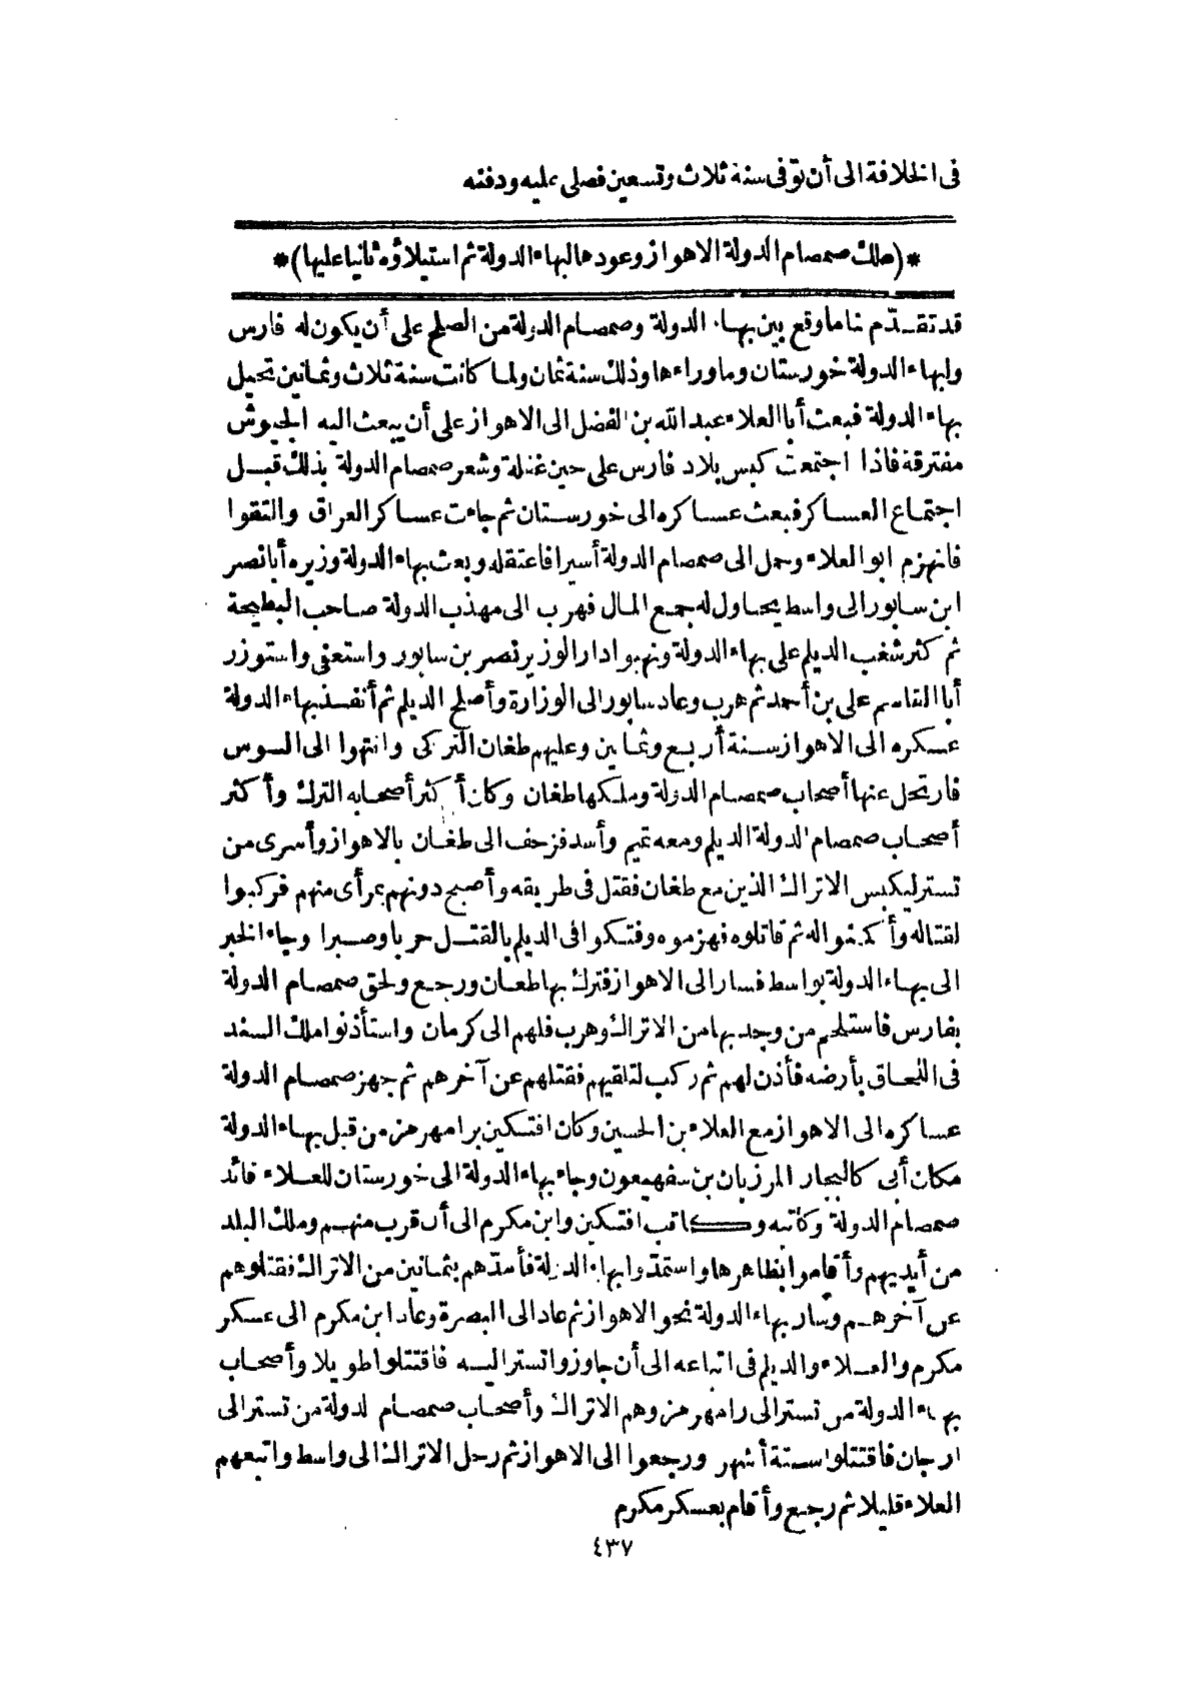 فى الخلافة الى أن توفى سنة ثلاث وتسعين فصلى عليه ودفنه
*(ملك صمصام الدولة الاهواز وعودها لبهاء الدولة ثم استيلاؤه ثانيا عليها)*
قد تقدّم لنا ما وقع بين بهاء الدولة وصمصام الدولة من الصلح على أن يكون له فارس
ولبهاء الدولة خورستان وما وراءها وذلك سنة ثمان ولما كانت سنة ثلاث وثمانين تحيل
بهاء الدولة فبعث أبا العلاء عبد الله بن الفضل الى الاهواز على أن يبعث اليه الجيوش
مفترقة فاذا اجتمعت كبس بلاد فارس على حين غفلة وشعر صمصام الدولة بذلك قبل
اجتماع العساكر فبعث عساكره الى خورستان ثم جاءت عساكر العراق والتقوا
فانهزم ابو العلاء وحمل الى صمصام الدولة أسيرا فاعتقله وبعث بهاء الدولة وزيره أبا نصر
ابن سابور الى واسط يحاول له جمع المال فهرب الى مهذب الدولة صاحب البطيحة
ثم كثر شغب الديلم على بهاء الدولة ونهبوا دار الوزير نصر بن سابور واستعفى واستوزر
أبا القاسم على بن أحمد ثم هرب وعاد سابور الى الوزارة وأصلح الديلم ثم أنفذ بهاء الدولة
عسكره الى الاهواز سنة أربع وثمانين وعليهم طغان التركى وانتهوا الى السوس
فارتحل عنها أصحاب صمصام الدولة وملكها طغان وكان أكثر أصحابه الترك وأكثر
أصحاب صمصام الدولة الديلم ومعه تميم وأسد فزحف الى طغان بالاهواز وأسرى من
تستر ليكبس الاتراك الذين مع طغان فقتل فى طريقه وأصبح دونهم بمرأى منهم فركبوا
لقتاله وأكمنوا له ثم قاتلوه فهزموه وفتكوا فى الديلم بالقتل حربا وصبرا وجاء الخبر
الى بهاء الدولة بواسط فسار الى الاهواز فترك بها طعان ورجع ولحق صمصام الدولة
بفارس فاستلحم من وجد بها من الاتراك وهرب فلهم الى كرمان واستأذنوا ملك السند
فى اللحاق بأرضه فأذن لهم ثم ركب لتلقيهم فقتلهم عن آخرهم ثم جهز صمصام الدولة
عساكره الى الاهواز مع العلاء بن الحسين وكان افتكين برامهرمز من قبل بهاء الدولة
مكان أبى كاليجار المرزبان بن سفهيعون وجاء بهاء الدولة الى خورستان للعلاء قائد
صمصام الدولة وكاتبه وكاتب افتكين وابن مكرم الى أن قرب منهم وملك البلد
من أيديهم وأقاموا بظاهرها واستمدّوا بهاء الدولة فأمدّهم بثمانين من الاتراك فقتلوهم
عن آخرهم وسار بهاء الدولة نحو الاهواز ثم عاد الى البصرة وعاد ابن مكرم الى عسكر
مكرم والعلاء والديلم فى اتباعه الى أن جاوزوا تستر اليسه فاقتتلوا طويلا وأصحاب
بهاء الدولة من تستر الى رامهرمز وهم الاتراك وأصحاب صمصام لدولة من تستر الى
ارجان فاقتتلوا ستة أشهر ورجعوا الى الاهواز ثم رحل الاتراك الى واسط واتبعهم
العلاء قليلا ثم رجع وأقام بعسكر مكرم
٤٣٧